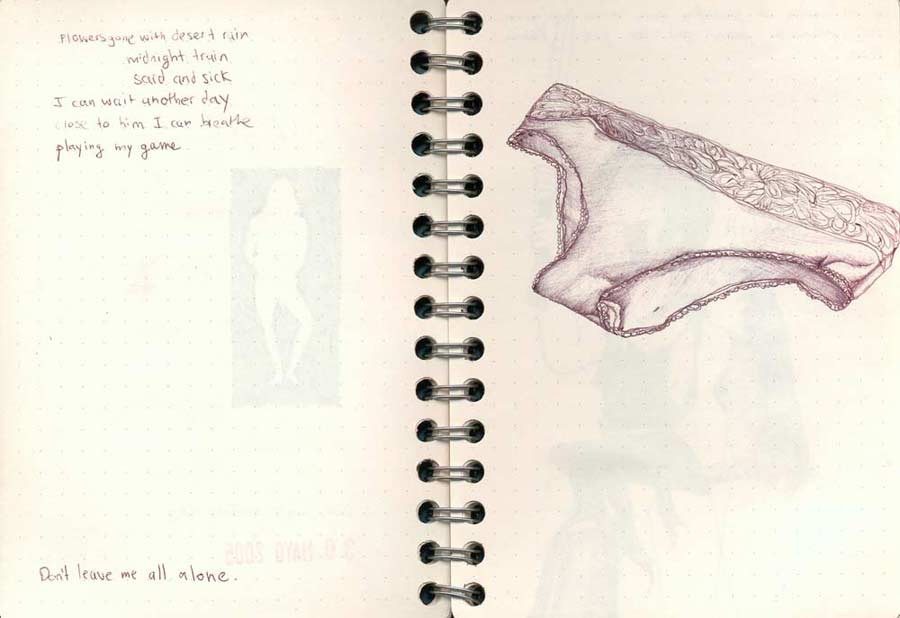 Flowers gone with desert rain
midnight train
said and sick
I can wait another day
close to him I can breathe
playing my game
Don't leave me all alone.
30 MAYO 2005